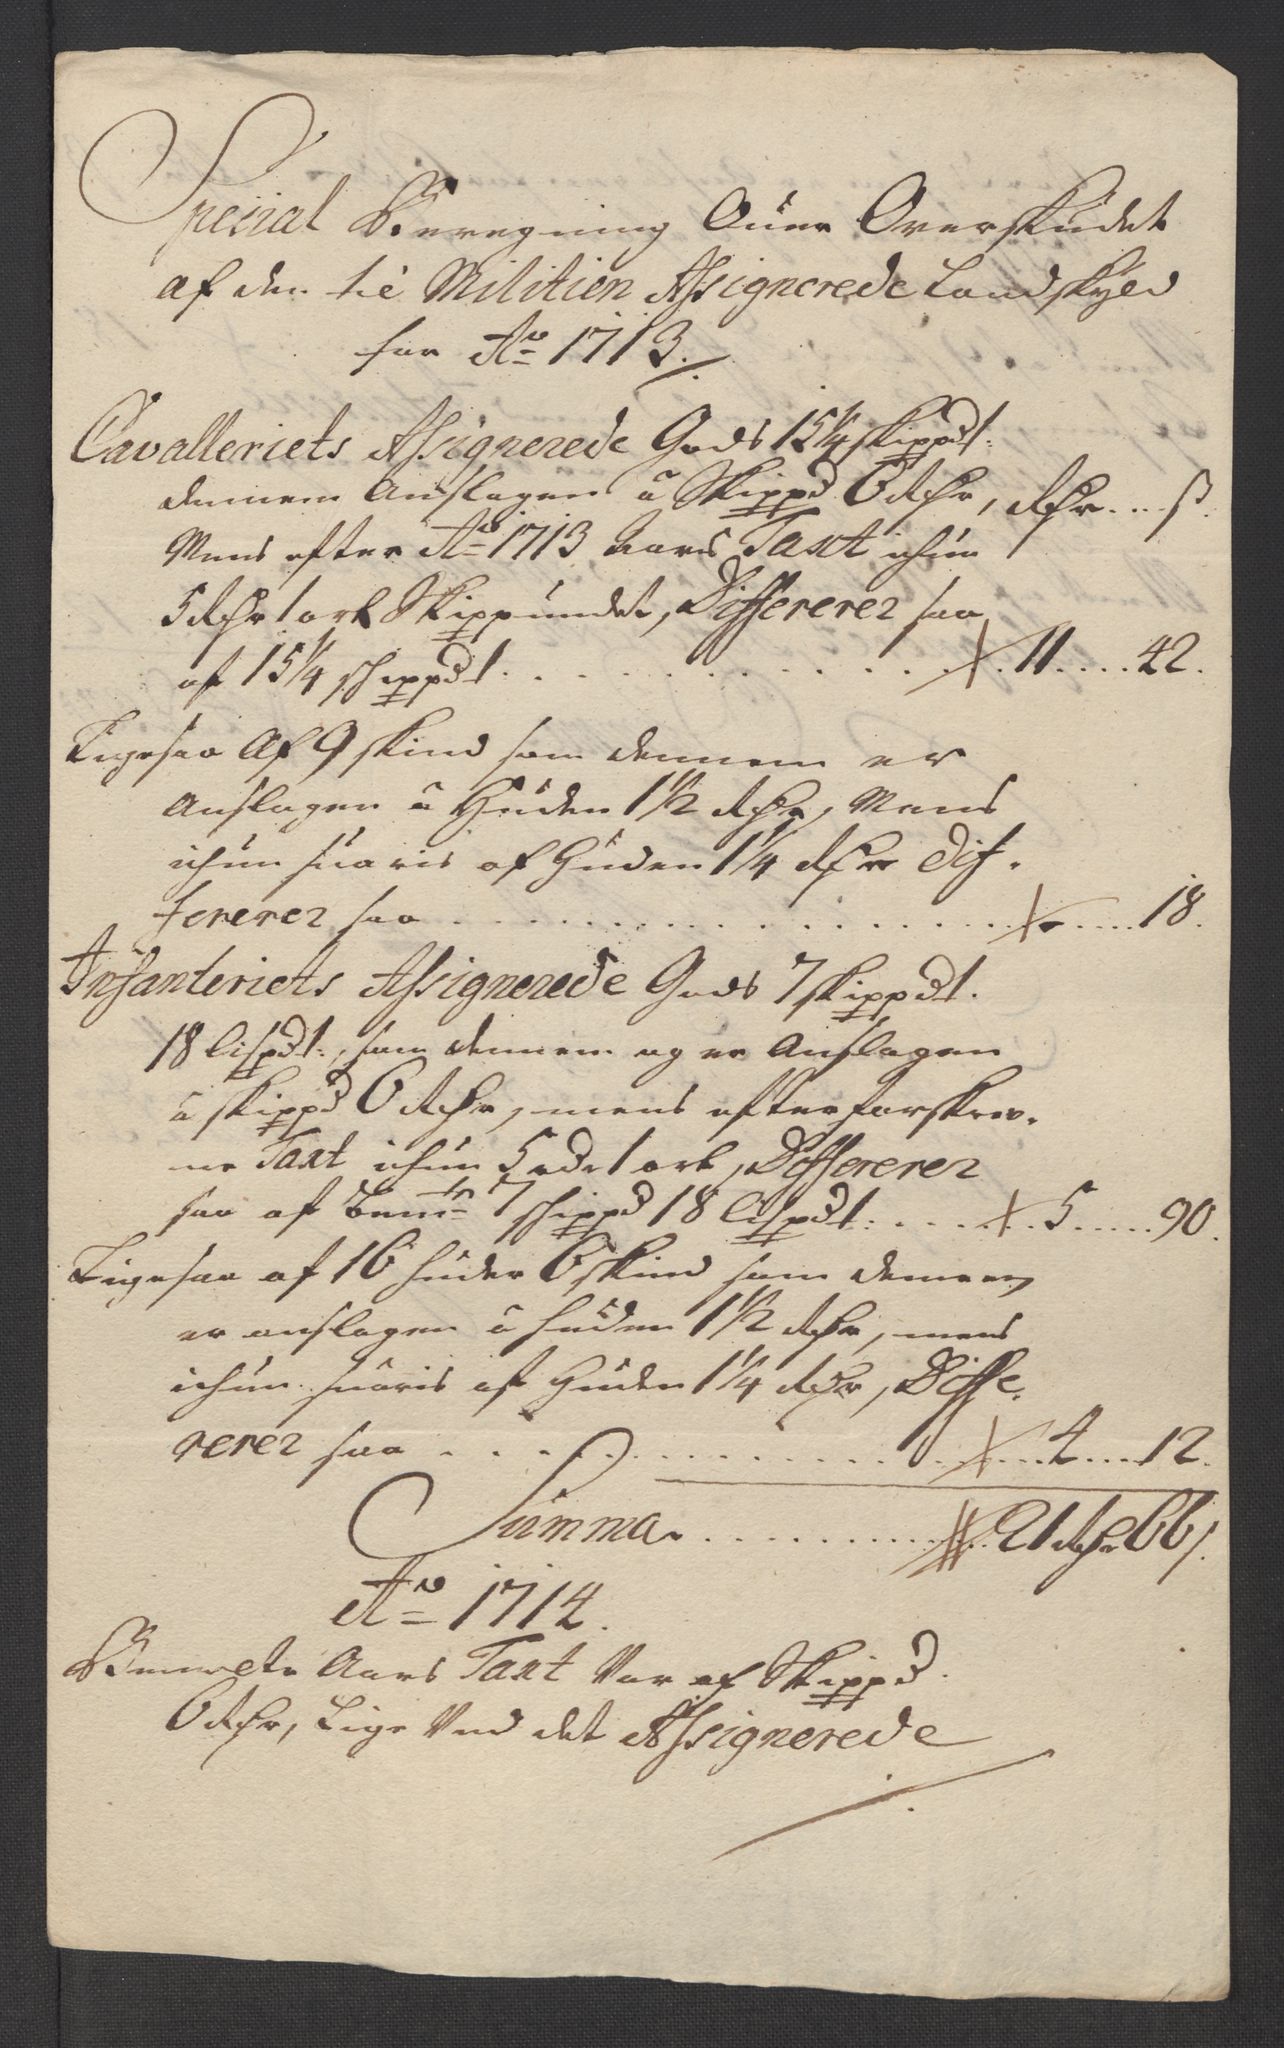 Special Beregning Over Overskudet
af den til Militien Assignerede Landskyld
for Ao 1713.
Cavalleriets Assignerede Gods 15 1/4 skippdt:
dennem Anslagen a Skippd 6 Rdr, Rdr...ß.
Mens efter Ao 1713 Aars Taxt ichun
5 Rdr 1 ort Skippundet, Differerer saa
af 15 1/4 schippdt . . . 11 . . . 42.
Ligesaa Af 9 skind som dennem er
Anslagen a Huden 1 1/2 Rdr, Mens
ichun svaris af Huden 1 1/4 Rdr Dif-
fererer saa . . . 18.
Infanteriets Assignerede Gods 7 skippdt.
18 Lispdt:, som dennem og er Anslagen
a skippd 6 Rdr, mens efter forskrev-
ne Taxt ichun 5 rdr 1 ort, Differerer
saa af bemte 7 schippd 18 Lispdt: . . . 5 . . . 90.
Ligesaa af 16 huder 6 skind som dennem
er anslagen a huden 1 1/2 Rdr, mens
ichun svaris af Huden 1 1/4 Rdr, Diffe-
rerer saa . . . 4 . . . 12.
Summa . . . 21 Rdr 66 ß.
Ao 1714.
Bemelte Aars Taxt Var af Skippd
6 Rdr, Lige Ved det Assignerede